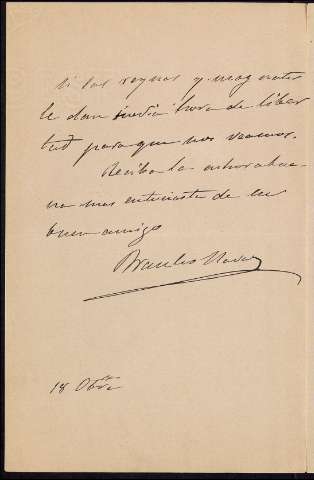 si las reynas y magnates
le dan media hora de liber
tad para que nos veamos.
Reciba la enhorabue-
na mas entusiasta de su
buen amigo
Braulio
18 Obre